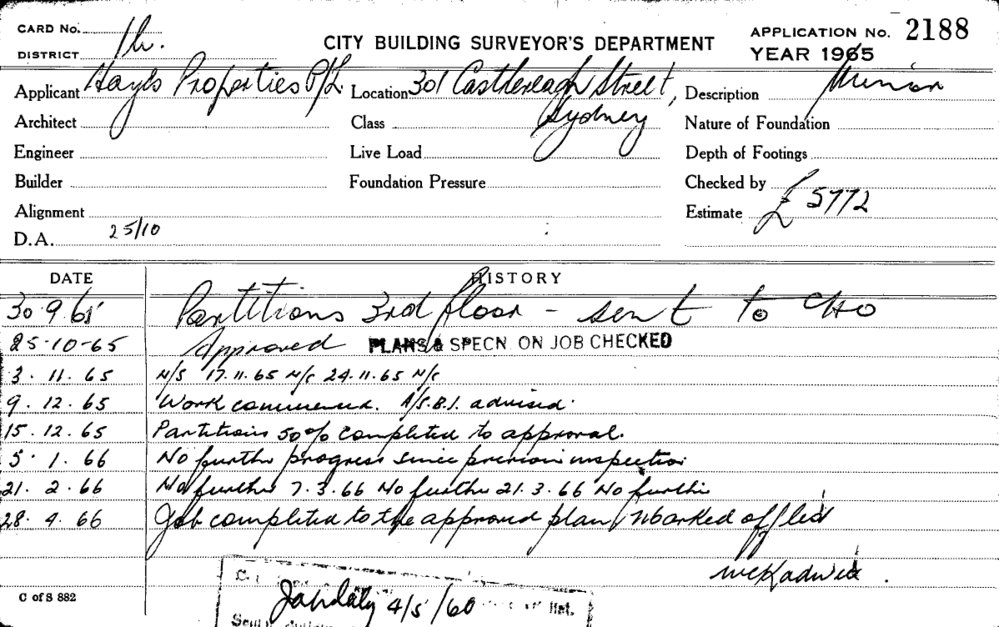 CARD No.
DISTRICT
CITY BUILDING SURVEYOR'S DEPARTMENT
APPLICATION No. 2188
YEAR 1965
Applicant Hayes Properties P/L Location 301 Castlereagh Street, Sydney Description Minor
Architect Class Nature of Foundation
Engineer Live Load Depth of Footings
Builder Foundation Pressure Checked by
Alignment Estimate £ 5772
D.A. 25/10
DATE HISTORY
30.9.65 Partitions 3rd floor - sent to CHO
25-10-65 Approved PLANS & SPECN. ON JOB CHECKED
3. 11. 65 N/S 17.11.65 N/C 24.11.65 N/C
9. 12. 65 Work commenced. A/S.B.I. advised.
15. 12. 65 Partitions 50% completed to approval.
5. 1. 66 No further progress since previous inspection
21. 2. 66 No further 7.3.66 No further 21.3.66 No further
28. 4. 66 Job completed to the approved plan, Marked off led
C of S 882
4/5/60